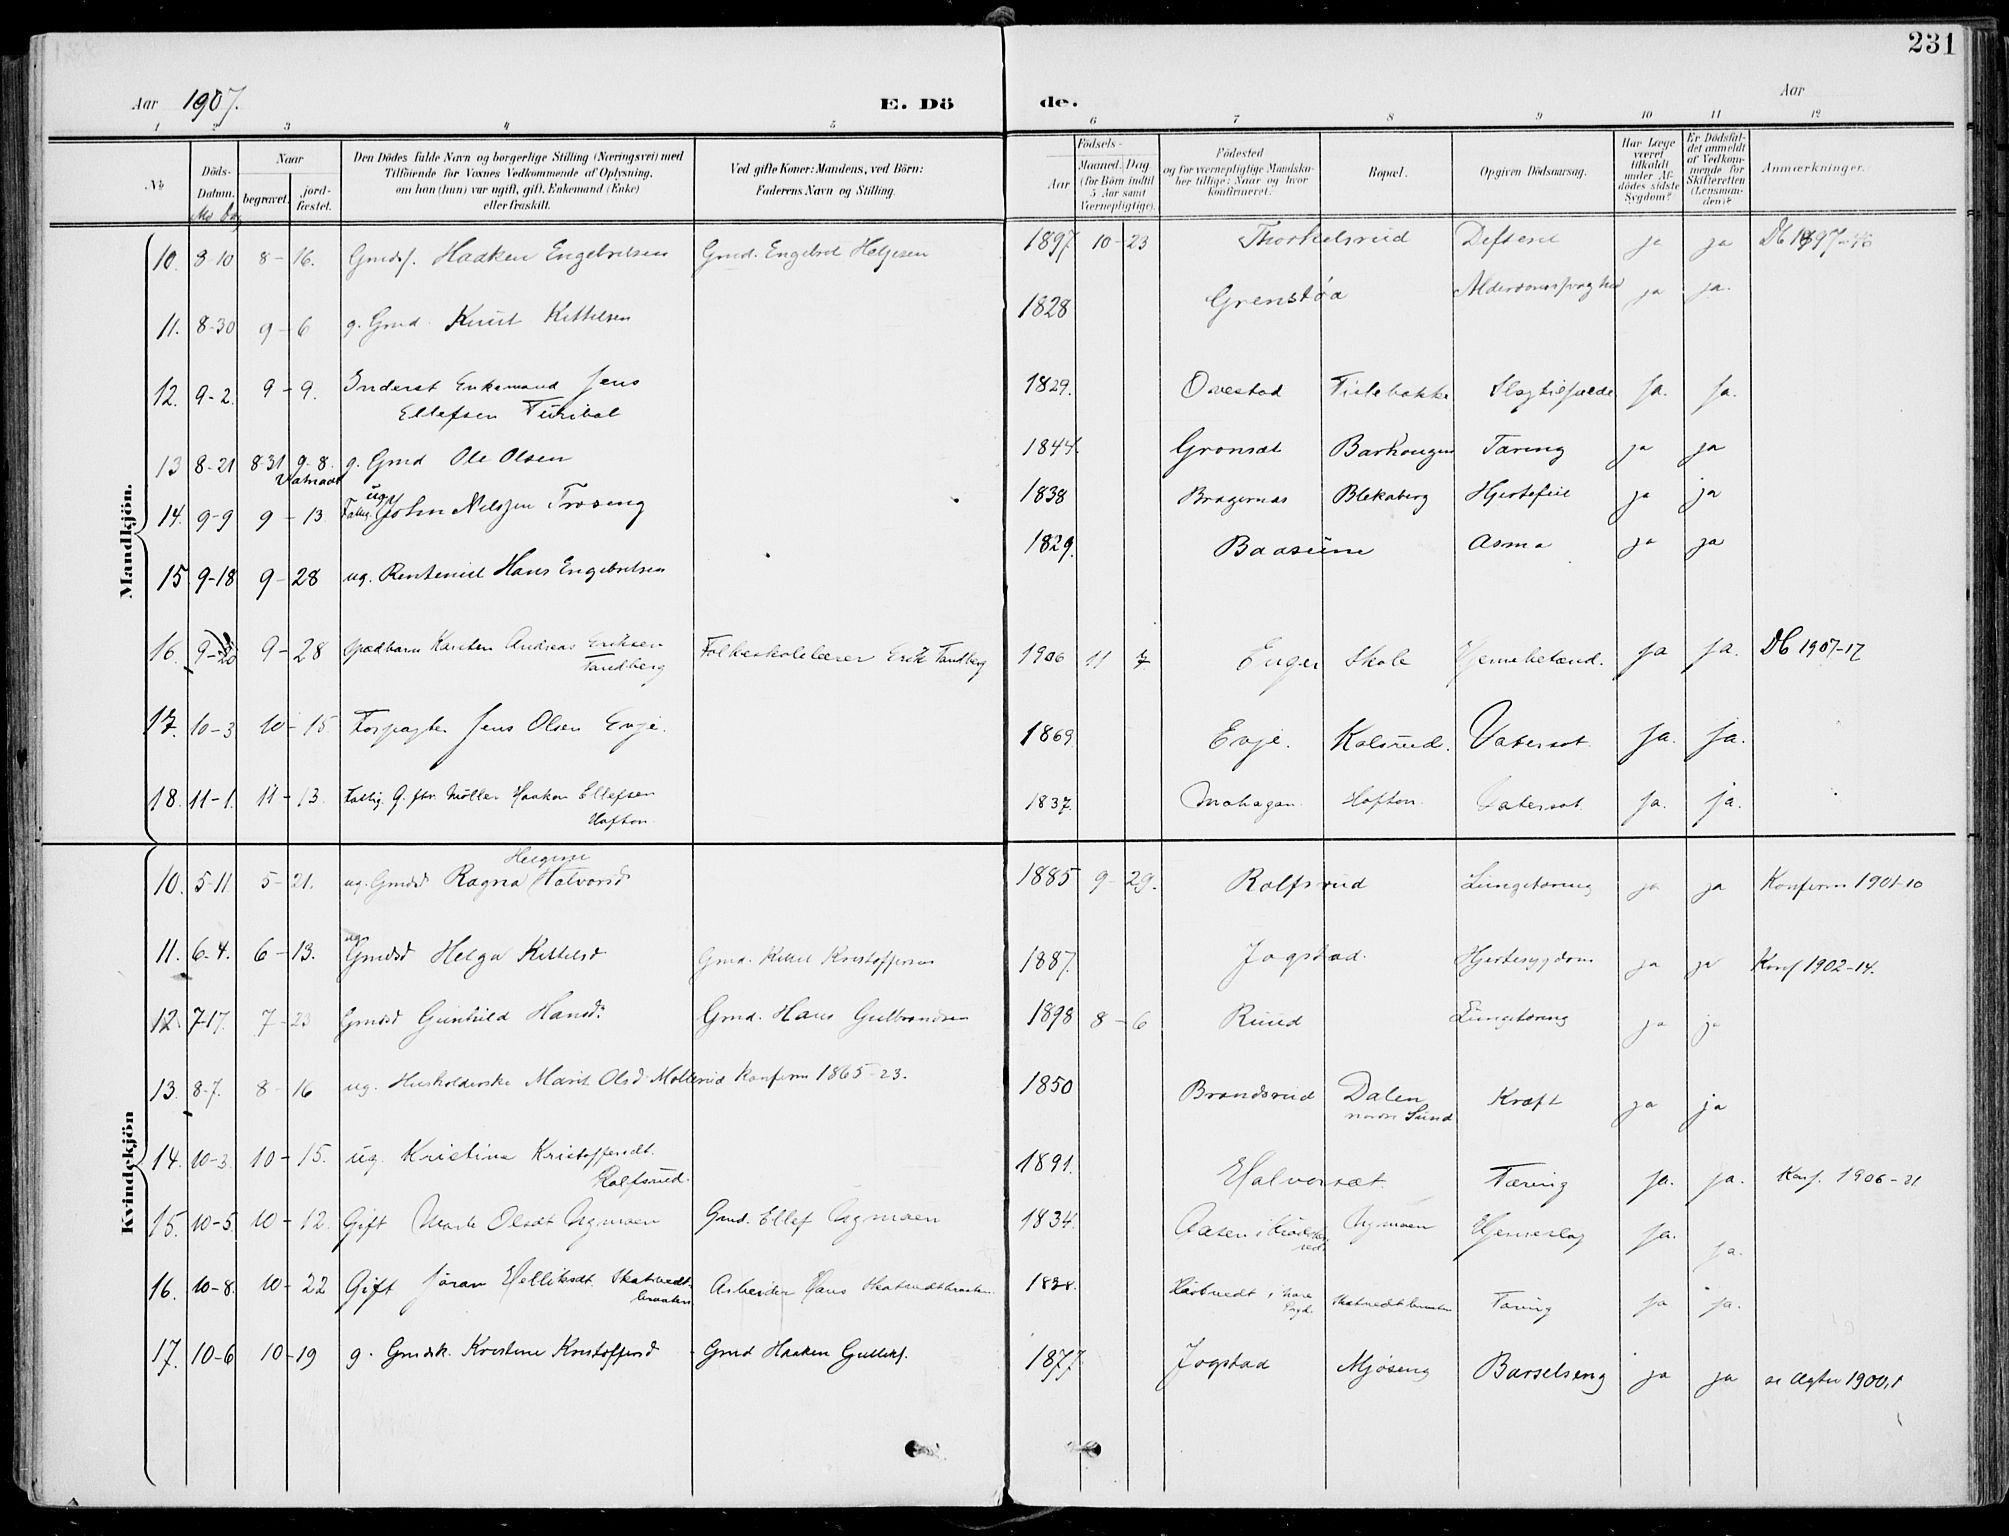 231
Aar 1907. E. Dö de. Aar
1 2 3 4 5 6 7 8 9 10 11 12
№
Döds-Datum.
Md Dag
Naar
begravet.
jord-fæstet.
Den Dödes fulde Navn og borgerlige Stilling (Næringsvei) med
Tilföiende for Voxnes Vedkommende af Oplysning,
om han (hun) var ugift, gift, Enkemand (Enke)
eller fraskilt.
Ved gifte Koner: Mandens, ved Börn:
Faderens Navn og Stilling.
Födsels-
Aar
Maaned. Dag
(for Börn indtil
5 Aar samt
Værnepligtige).
Födested
og for værnepligtige Mandska-
ber tillige: Naar og hvor
konfirmeret.
Bopæl.
Opgiven Dödsaarsag.
Har Læge
været
tilkaldt
under Af-
dödes sidste
Sygdom?
Er Dödsfal-
det anmeldt
af Vedkom-
mende for
Skifteretten
(Lensman-
den)?
Anmærkninger.
Mandkjön.
10. 8-10 8-16. Gmdsf. Haaken Engebretsen Gmd. Engebret Helgesen 1897 10-23 Thorkelsrud Difteri ja ja Db 1897-
11. 8-30 9-6 g. Gmd. Knut Kittelsen 1828 Grenstøa Alderdomssvaghed ja ja.
12. 9-2. 9-9. Inderst Enkemand Jens
Ellefsen Turibal 1829. Ovestad Tislebakke Slagtilfælde ja. ja.
13 8-21 8-31 9-8. g. Gmd Ole Olsen 1844. Gronsæt Barhougen Tæring ja ja
14. 9-9 9-13. ug. John Nilssen Trøseng 1838 Bragernæs Blekaberg Hjertefeil ja ja
15 9-18 9-28 ug. Rentenist Hans Engebretsen 1829. Baasune Asma ja ja
16. 9-20 9-28 Spædbarn Karsten Andreas Eriksen
Tandberg Folkeskolelærer Erik Tandberg 1906 11 7. Enger Skole Hjernebetænd. ja ja. Db 1907-17
17. 10-3 10-15 Forpagter Jens Olsen Evje. 1869 Evje. Kolsrud. Vatersot. ja. ja.
18. 11-1. 11-13. Fattig. G. fhv. Møller Haakon Ellefsen
Hafton. 1837. Mohagan. Hafton. Vatersot. ja. ja.
Kvindekjön
Helgesen
10. 5-11 5-21. ug. Gmdsd Ragna Halvorsd 1885 9-29. Rolfsrud Lungetæring ja ja Konfirm 1901-10
ug.
11. 6-4. 6-13. Gmdsd Helga Kittelsd Gmd. Kittel Kristoffersen 1887. Jogstad. Hjertesygdom ja ja Konf 1902-14.
12. 7-17. 7-23 Gmdsd Gunhild Hansd. Gmd. Hans Gulbrandsen 1898 8-6 Ruud Lungetæring ja ja
13. 8-7. 8-16 ug. Husholderske Marit Olsd Møllerud Konfirm 1865-23. 1850 Brandsrud Dalen
nordre Sund Kræft ja ja
14. 10-3. 10-15. ug. Kristine Kristoffersdt.
Rolfsrud. 1891. Halvorsæt. Tæring ja. ja. Konf. 1906-21
15. 10-5 10-12. Gift Marte Olsdt Agmoen Gmd. Ellef Agmoen 1834. Aasen i Agmoen Hjerneslag ja. ja.
16. 10-8. 10-22 Gift Jøran Helliksdt. Skatvedt-
braaten Arbeider Hans Skatvedtbraaten Skatvedtbraaten Tæring ja ja.
17. 10-6 10-19 g. Gmdsk. Kristine Kristoffersd Gmd Haaken Gulliks. 1877. Jogstad Mjøseng Barselseng ja ja se Ægtev 1900,1